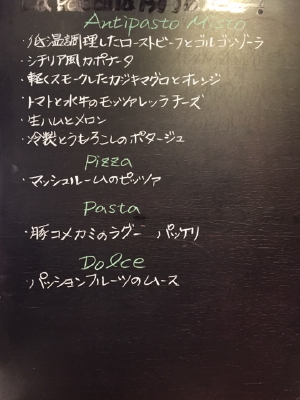 Antipasto Misto
・低温調理したローストビーフとゴルゴンゾーラ
・シチリア風カポナータ
・軽くスモークしたカジキマグロとオレンジ
・トマトと水牛のモッツァレッラチーズ
・生ハムとメロン
・冷製とうもろこしのポタージュ
Pizza
・マッシュルームのピッツァ
Pasta
・豚コメカミのラグー パッケリ
Dolce
・パッションフルーツのムース